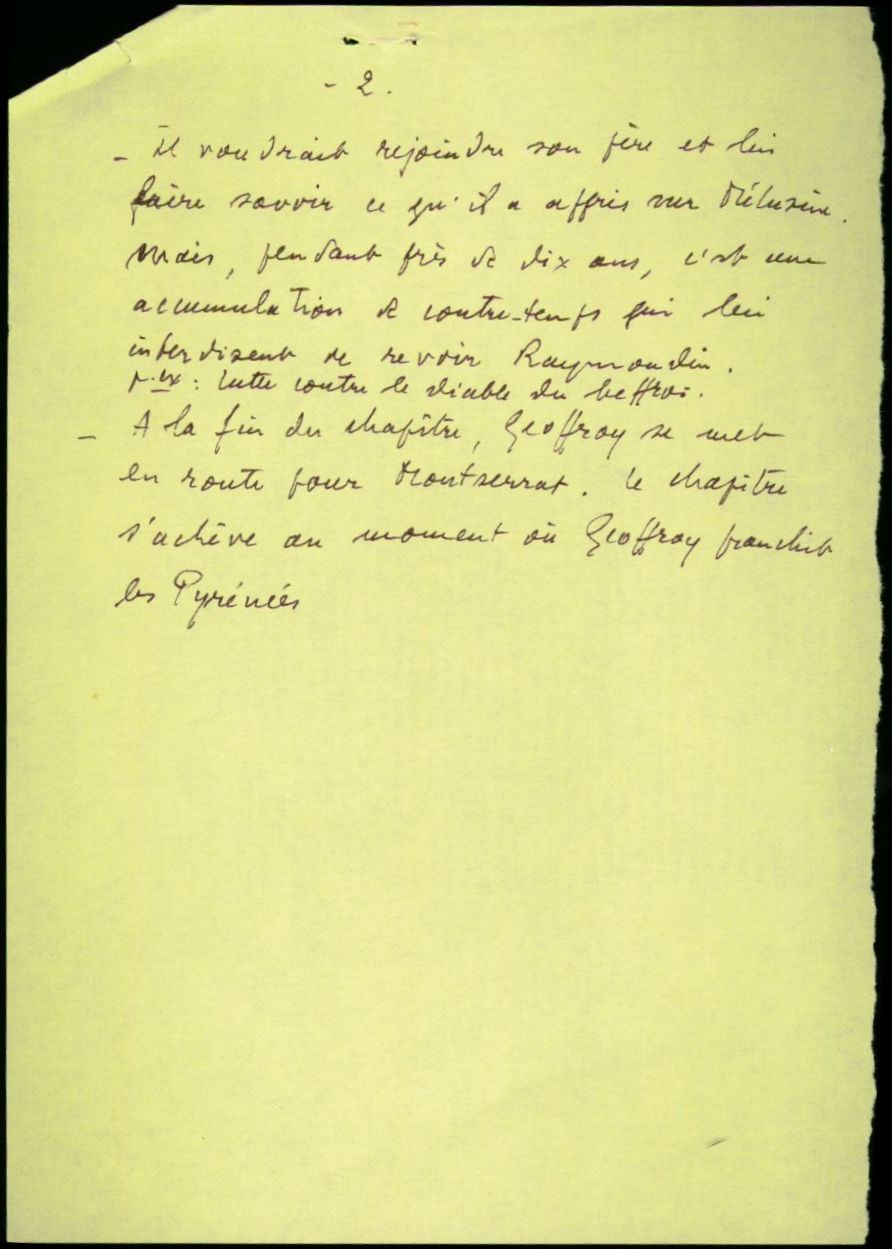 - 2.
- Il voudrait rejoindre son père et lui
faire savoir ce qu'il a appris sur Mélusine.
Mais, pendant près de dix ans, c'est une
accumulation de contre-temps qui lui
interdisent de revoir Raymondin.
p.ex : lutte contre le diable du beffroi.
- A la fin du chapître, Geoffroy se met
en route pour Montserrat. Le chapître
s'achève au moment où Geoffroy franchit
les Pyrénées